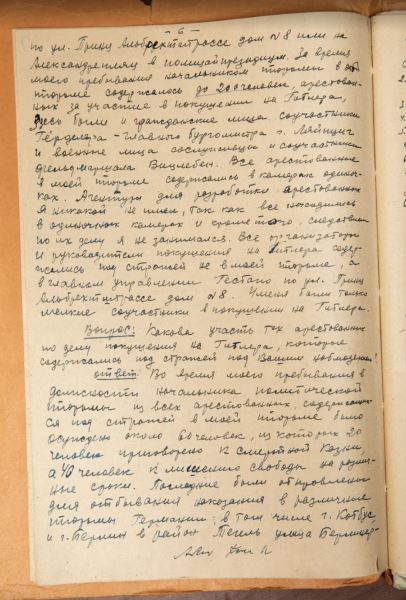 - 6 -
по ул. Принц Альбрехтштрассе дом №8 или на
Александерплац в полицайпрезидиум. За время
моего пребывания начальником тюрьмы в
тюрьме содержалось до 200 человек, арестован-
ных за участие в покушении на Гитлера,
Здесь были и гражданские лица соучастники
Герделера - главного бургомистра г. Лейпциг
и военные лица сослуживцы и соучастники
фельдмаршала Вицлебен. Все арестованные
в моей тюрьме содержались в камерах одиноч-
ках. Агентуры для разработки арестованных
я никакой не имел, так как все находились
в одиночных камерах и кроме того, следствием
по их делу я не занимался. Все организаторы
и руководители покушения на Гитлера содер-
жались под стражей не в моей тюрьме, а
в главном управлении Гестапо по ул. Принц
Альбрехтштрассе дом №8. У меня были только
мелкие соучастники в покушении на Гитлера.
Вопрос: Какова участь тех арестованных
по делу покушения на Гитлера, которые
содержались под стражей под Вашим наблюдением?
Ответ: Во время моего пребывания в
должности начальника политической
тюрьмы из всех арестованных содержавших-
ся под стражей в моей тюрьме было
осуждено около 60 человек, из которых 20
человек приговорено к смертной казни
а 40 человек к лишению свободы на разли-
ные сроки. Последние были отправлены
для отбывания наказания в различные
тюрьмы Германии, в том числе г. Котбус,
и г. Берлин в район Тегель улица Берлинер-